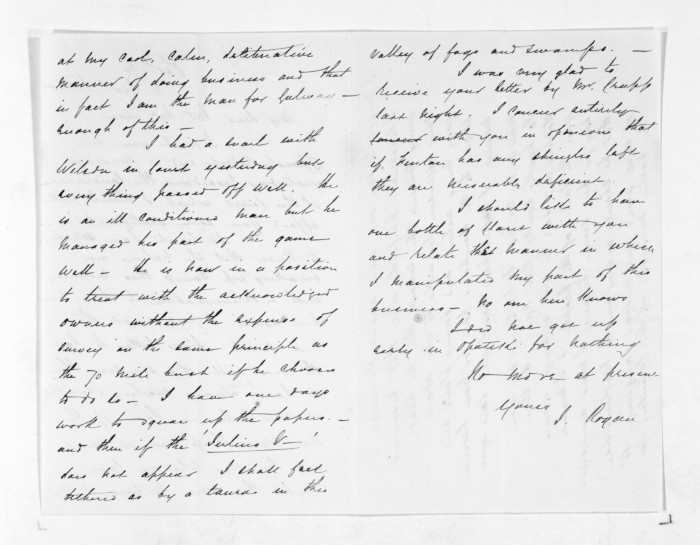 at my cool, calm, deliberative
manner of doing business and that
in fact I am the man for
Enough of this —
I had a snarl with
Wilson in Court yesterday but
every thing passed off well. He
is an ill conditioned man but he
managed his part of the game
well — He is now in a position
to treat with the acknowledged
owners without the expense of
survey on the same principle as
the 70 mile bush if he chooses
to do so — I have one days
work to square up the papers. —
and then if the 'Julius V'
does not appear I shall feel
tethered as by a in this
valley of fogs and swamps. —
I was very glad to
receive your letter by Mr.
last night. I concur entirely
with you in opinion that
if Fenton has any shingles left
they are miserably deficient
I should like to have
one bottle of Claret with you
and relate the manner in which
I manipulated my part of this
business — No one here knows
I did not get up
early in for nothing
No more at present
Yours
J. Rogan